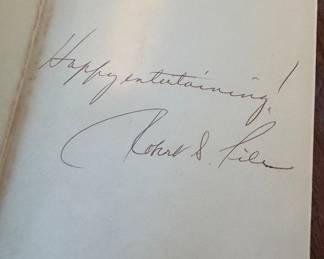 Happy entertaining!
Robert S. Pile